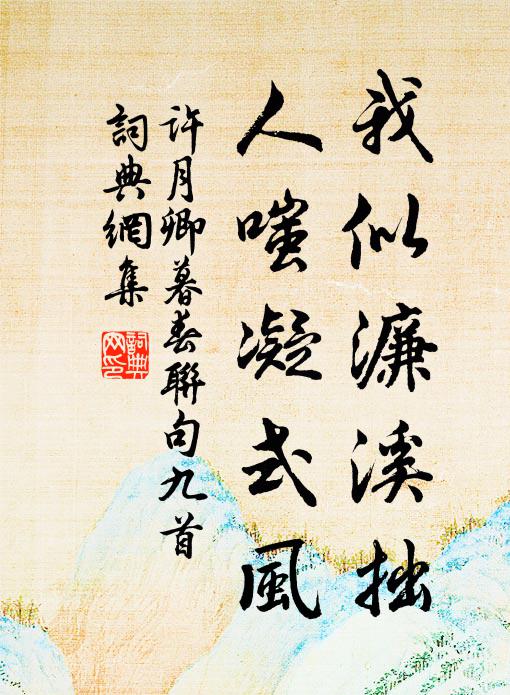 我似濂溪拙
人嗤凝式風
許月卿暮春聯句九首
詞典網集
詞典網印